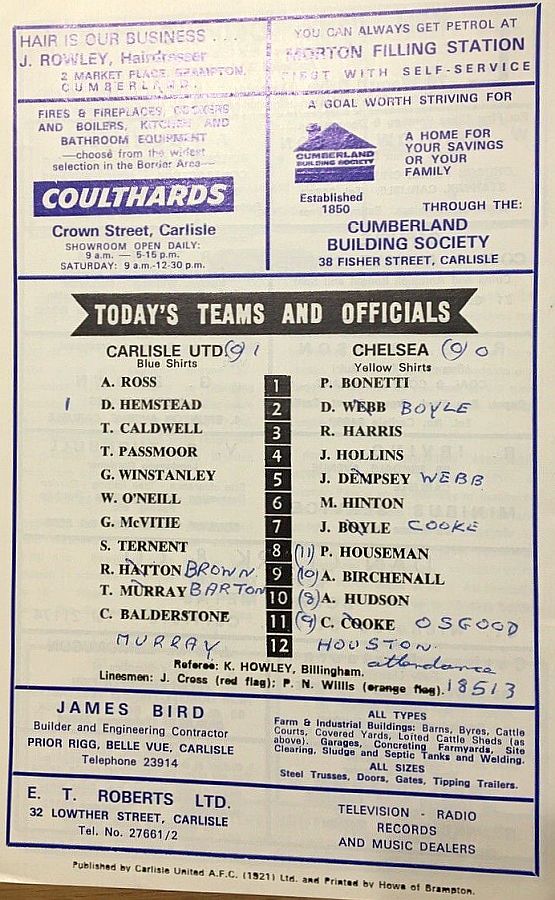 HAIR IS OUR BUSINESS . . .
J. ROWLEY, Hairdresser
2 MARKET PLACE, BRAMPTON,
CUMBERLAND.
YOU CAN ALWAYS GET PETROL AT
MORTON FILLING STATION
FIRST WITH SELF-SERVICE
FIRES & FIREPLACES, COOKERS
AND BOILERS, KITCHEN AND
BATHROOM EQUIPMENT
—choose from the widest
selection in the Border Area—
COULTHARDS
Crown Street, Carlisle
SHOWROOM OPEN DAILY:
9 a.m. — 5-15 p.m.
SATURDAY: 9 a.m.-12-30 p.m.
A GOAL WORTH STRIVING FOR
CUMBERLAND
BUILDING SOCIETY
Established
1850
A HOME FOR
YOUR SAVINGS
OR YOUR
FAMILY
THROUGH THE:
CUMBERLAND
BUILDING SOCIETY
38 FISHER STREET, CARLISLE
TODAY'S TEAMS AND OFFICIALS
CARLISLE UTD. (0) 1 CHELSEA (0) 0
Blue Shirts Yellow Shirts
A. ROSS 1 P. BONETTI
1 D. HEMSTEAD 2 D. WEBB BOYLE
T. CALDWELL 3 R. HARRIS
T. PASSMOOR 4 J. HOLLINS
G. WINSTANLEY 5 J. DEMPSEY WEBB
W. O'NEILL 6 M. HINTON
G. McVITIE 7 J. BOYLE COOKE
S. TERNENT 8 (11) P. HOUSEMAN
R. HATTON BROWN 9 (10) A. BIRCHENALL
T. MURRAY BARTON 10 (8) A. HUDSON
C. BALDERSTONE 11 (9) C. COOKE OSGOOD
MURRAY 12 HOUSTON.
Referee: K. HOWLEY, Billingham. attendance
Linesmen: J. Cross (red flag); P. N. Willis (orange flag). 18513
JAMES BIRD
Builder and Engineering Contractor
PRIOR RIGG, BELLE VUE, CARLISLE
Telephone 23914
ALL TYPES
Farm & Industrial Buildings: Barns, Byres, Cattle
Courts, Covered Yards, Lofted Cattle Sheds (as
above). Garages, Concreting Farmyards, Site
Clearing, Sludge and Septic Tanks and Welding.
ALL SIZES
Steel Trusses, Doors, Gates, Tipping Trailers.
E. T. ROBERTS LTD.
32 LOWTHER STREET, CARLISLE
Tel. No. 27661/2
TELEVISION - RADIO
RECORDS
AND MUSIC DEALERS
Published by Carlisle United A.F.C. (1921) Ltd. and Printed by Howe of Brampton.